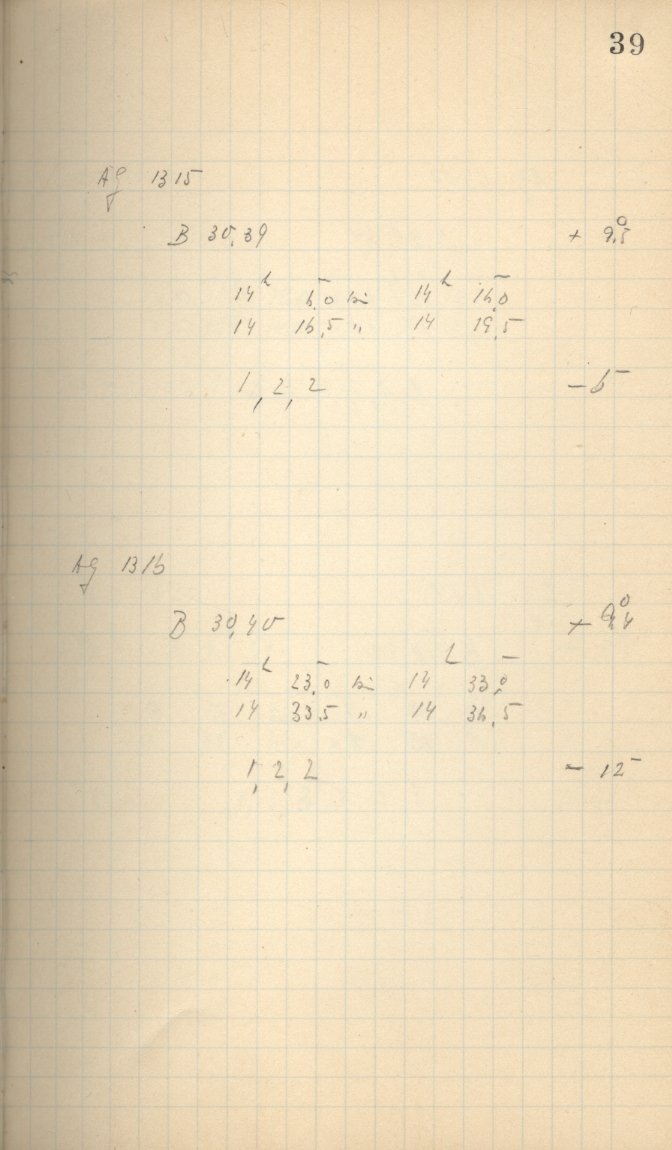 39
AG 1315
B 30,39 + 9,5°
14h 6,0 bis 14h 16,0
14 16,5 " 14 19,5
1, 2, 2 – 6–
AG 1316
B 30,40 + 9,4°
14h 23,0 bis 14h 33,0
14 33,5 " 14 36,5
1, 2, 2 – 12–